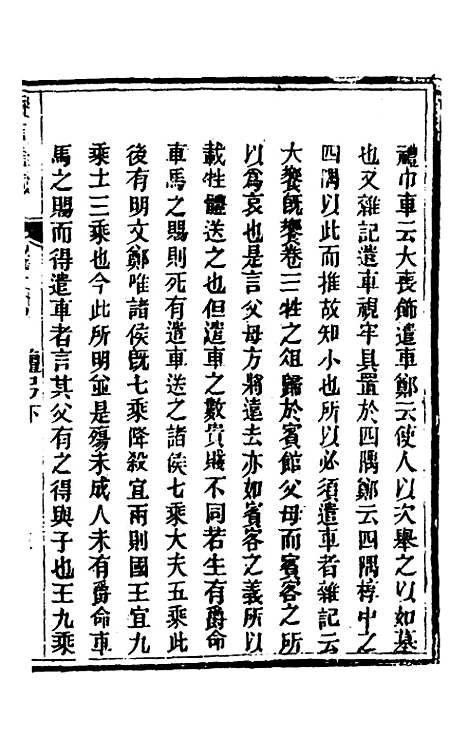 禮巾車云大喪飾遣車鄭云使人以次舉之以如墓
也又雜記遣車視牢具置於四隅鄭云四隅椁中之
四隅以此而推故知小也所以必須遣車者雜記云
大饗旣饗卷三牲之俎歸於賓館父母而賓客之所
以爲哀也是言父母方將遠去亦如賓客之義所以
載牲體送之也但遣車之數貴賤不同若生有爵命
車馬之賜則死有遣車送之諸侯七乘大夫五乘此
後有明文鄭唯諸侯旣七乘降殺宜兩則國王宜九
乘士三乘也今此所明並是殤未成人未有爵命車
馬之賜而得遣車者言其父有之得與子也王九乘
檀弓下